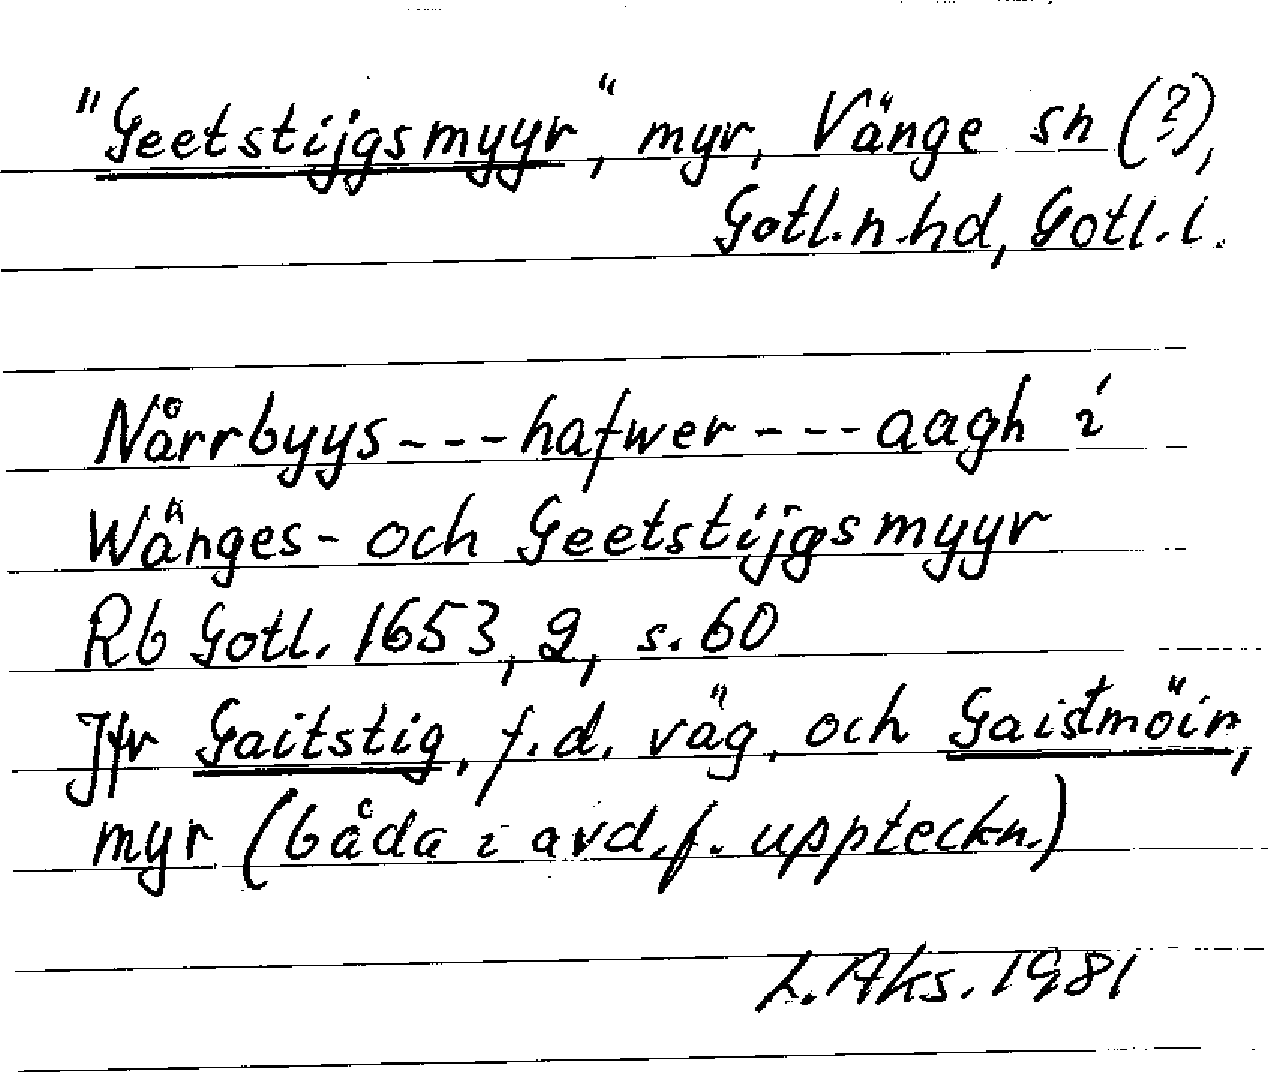 "Geetstijgsmyyr", myr, Vänge sn (?),
Gotl. n. hd, Gotl. l.
Nårrbyys - - - hafwer - - - aagh i
Wänges- och Geetstijgsmyyr
Rb Gotl. 1653, 2, s. 60
Jfr Gaitstig, f.d. väg, och Gaistmöir,
myr (båda i avd. f. uppteckn.)
L. Aks. 1981